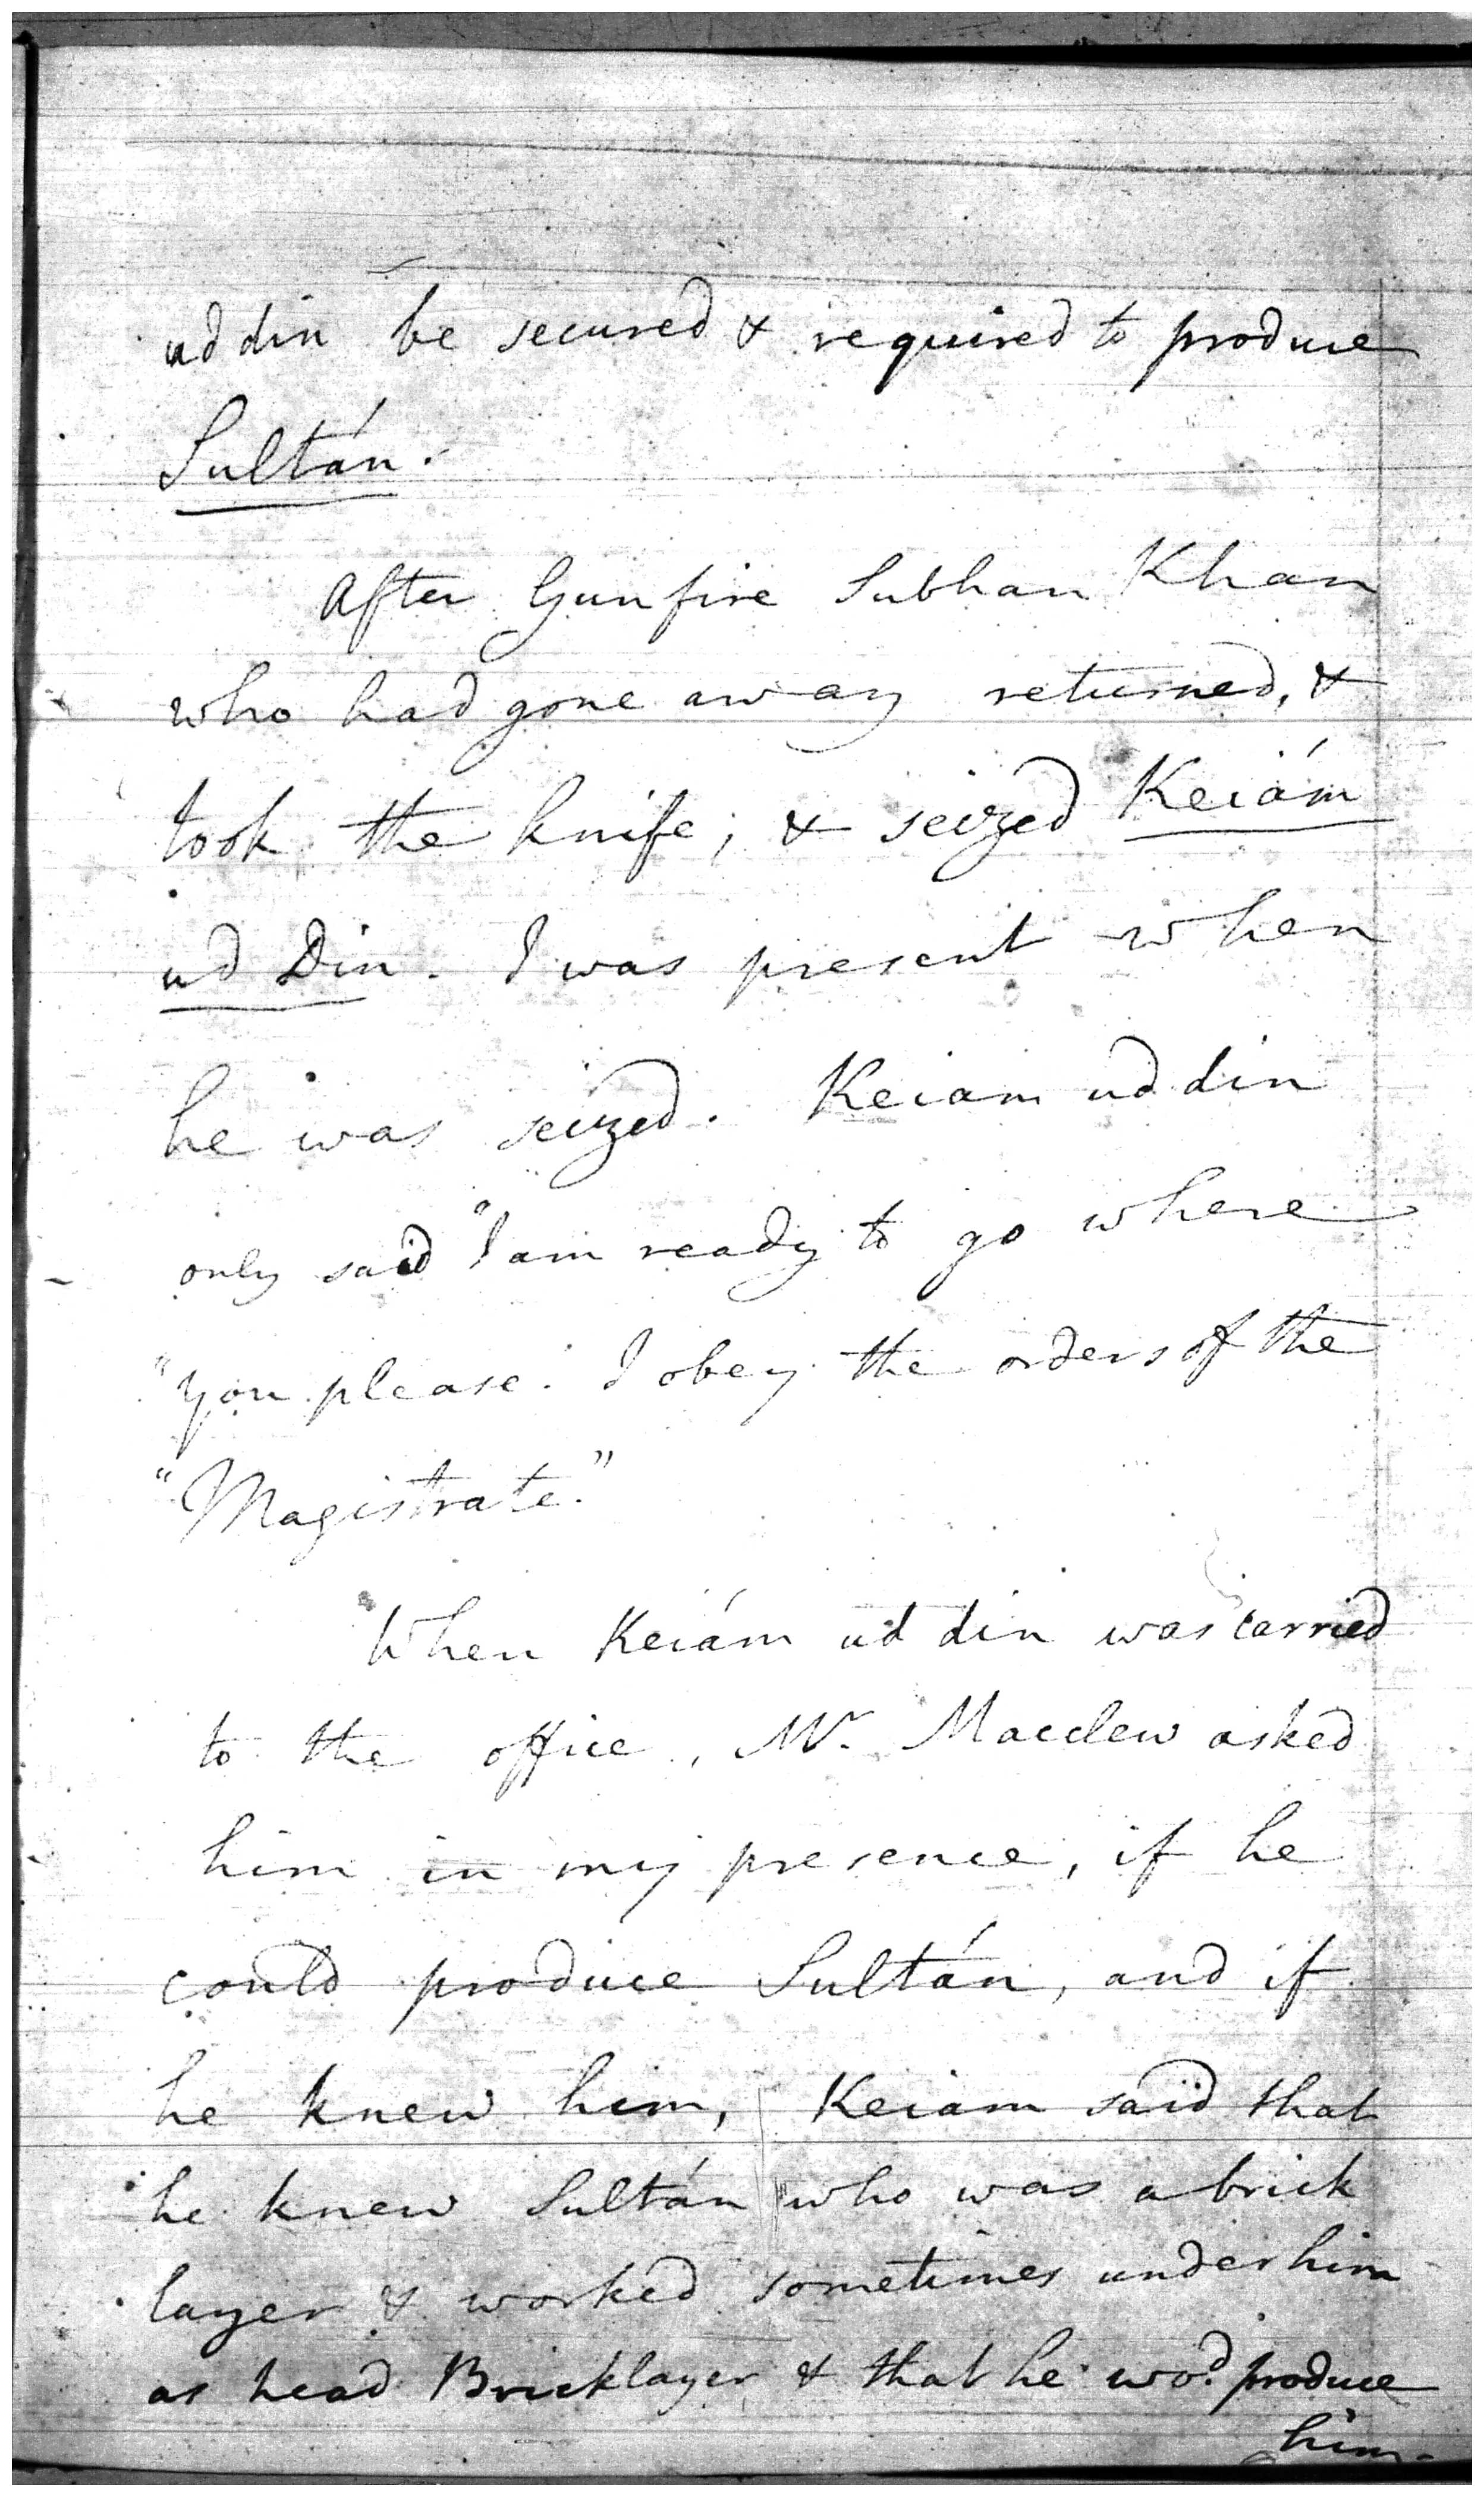 ud din be secured & required to produce
Sultán.
After Gunfire Subhan Khan
who had gone away returned, &
took the knife; & seized Keiám
ud Din. I was present when
he was seized. Keiam ud din
only said "I am ready to go where
"you please. I obey the orders of the
"Magistrate."
When Keiám ud din was carried
to the office, Mr. Macclew asked
him in my presence, if he
could produce Sultán, and if
he knew him, Keiam said that
he knew Sultán who was a brick
layer & worked sometimes under him
as head Bricklayer & that he wod. produce
him.